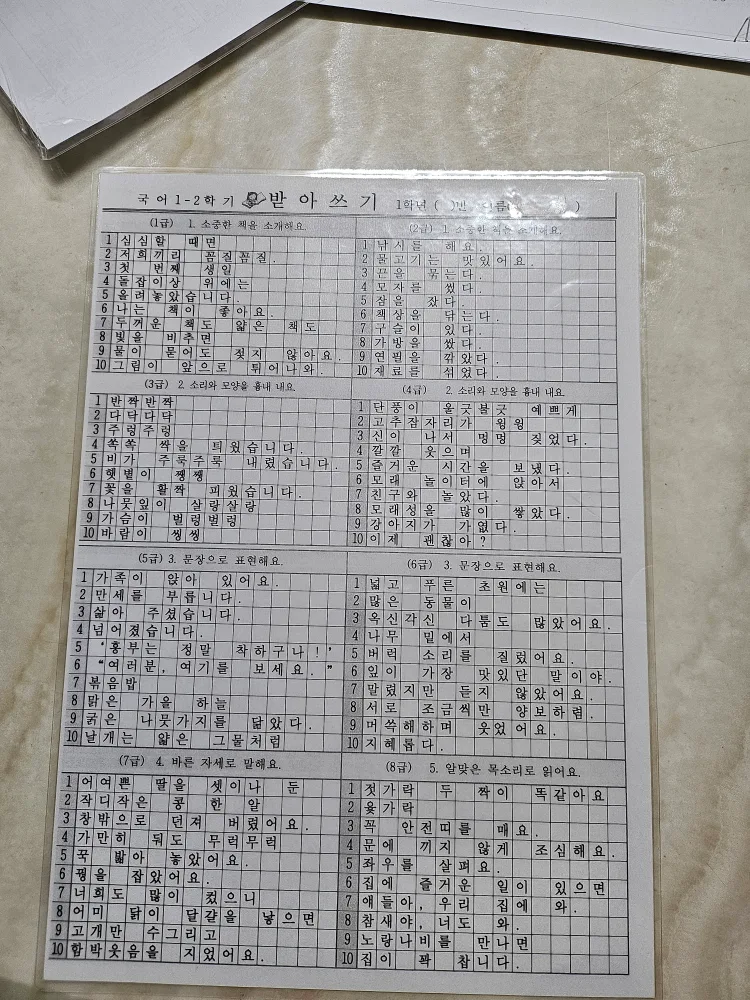 국어 1-2학기 받아쓰기 1학년 ( )반 이름( )
(1급) 1. 소중한 책을 소개해요.
1 심심할 때면
2 저희끼리 꼼질꼼질.
3 첫 번째 생일
4 돌잡이상 위에는
5 올려놓았습니다.
6 나는 책이 좋아요.
7 두꺼운 책도 얇은 책도
8 빛을 비추면
9 물이 묻어도 젖지 않아요.
10 그림이 앞으로 튀어나와.
(2급) 1. 소중한 책을 소개해요.
1 낚시를 해요.
2 물고기는 맛있어요.
3 끈을 묶는다.
4 모자를 썼다.
5 잠을 잤다.
6 책상을 닦는다.
7 구슬이 있다.
8 가방을 쌌다.
9 연필을 깎았다.
10 재료를 섞었다.
(3급) 2. 소리와 모양을 흉내 내요.
1 반짝반짝
2 다닥다닥
3 주렁주렁
4 쏙쏙 싹을 틔웠습니다.
5 비가 주룩주룩 내렸습니다.
6 햇볕이 쨍쨍
7 꽃을 활짝 피웠습니다.
8 나뭇잎이 살랑살랑
9 가슴이 벌렁벌렁
10 바람이 씽씽
(4급) 2. 소리와 모양을 흉내 내요.
1 단풍이 울긋불긋 예쁘게
2 고추잠자리가 윙윙
3 신이 나서 멍멍 짖었다.
4 깔깔 웃으며
5 즐거운 시간을 보냈다.
6 모래 놀이터에 앉아서
7 친구와 놀았다.
8 모래성을 많이 쌓았다.
9 강아지가 가엾다.
10 이제 괜찮아?
(5급) 3. 문장으로 표현해요.
1 가족이 앉아 있어요.
2 만세를 부릅니다.
3 살아 주셨습니다.
4 넘어졌습니다.
5 ‘흥부는 정말 착하구나!’
6 “여러분, 여기를 보세요.”
7 볶음밥
8 맑은 가을 하늘
9 굵은 나뭇가지를 닮았다.
10 날개는 얇은 그물처럼
(6급) 3. 문장으로 표현해요.
1 넓고 푸른 초원에는
2 많은 동물이
3 옥신각신 다툼도 많았어요.
4 나무 밑에서
5 버럭 소리를 질렀어요.
6 잎이 가장 맛있단 말이야.
7 말렸지만 듣지 않았어요.
8 서로 조금씩만 양보하렴.
9 머쓱해하며 웃었어요.
10 지혜롭다.
(7급) 4. 바른 자세로 말해요.
1 어여쁜 딸을 셋이나 둔
2 작디작은 콩 한 알
3 창밖으로 던져 버렸어요.
4 가만히 둬도 무럭무럭
5 꾹 밟아 놓았어요.
6 꿩을 잡았어요.
7 너희도 많이 컸으니
8 어미 닭이 달걀을 낳으면
9 고개만 수그리고
10 함박웃음을 지었어요.
(8급) 5. 알맞은 목소리로 읽어요.
1 젓가락 두 짝이 똑같아요
2 윷가락
3 꼭 안전띠를 매요.
4 문에 끼지 않게 조심해요.
5 좌우를 살펴요.
6 집에 즐거운 일이 있으면
7 얘들아, 우리 집에 와.
8 참새야, 너도 와.
9 노랑나비를 만나면
10 집이 꽉 찹니다.